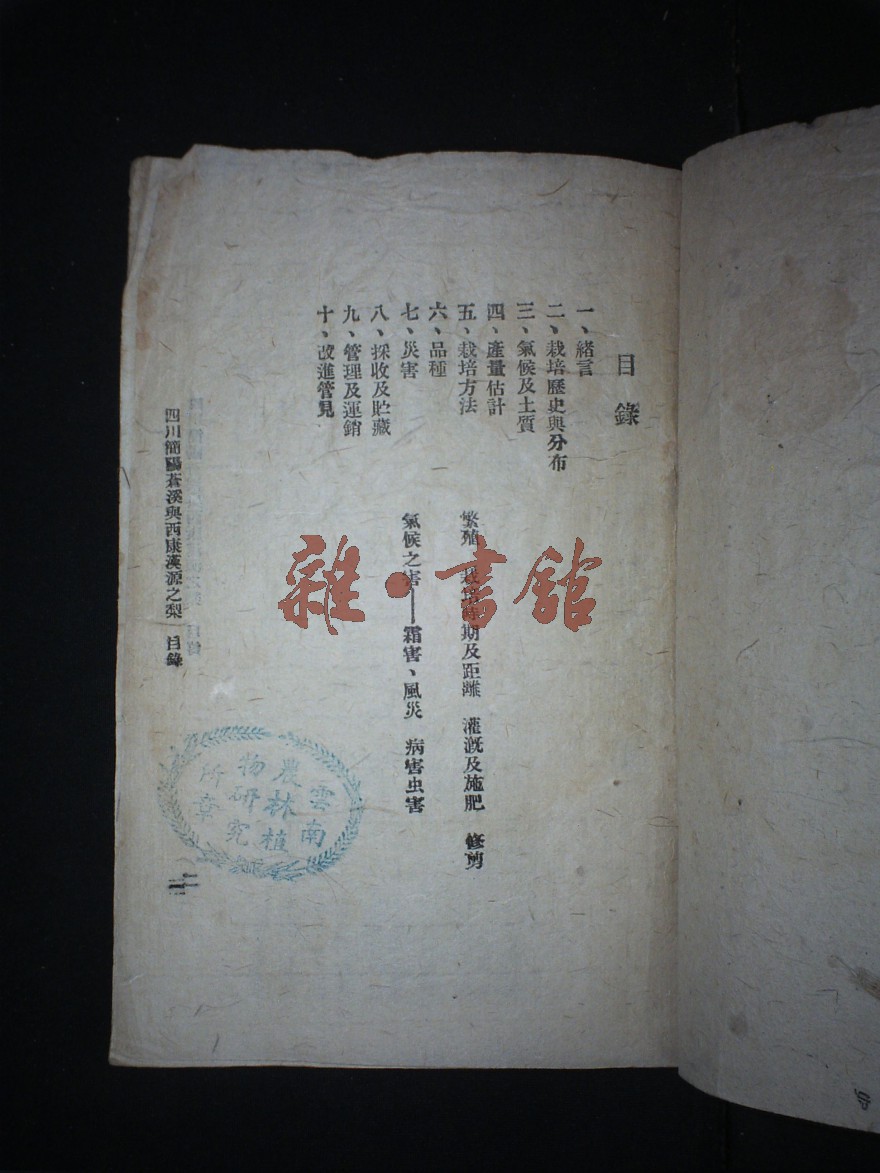 目錄
一、緒言
二、栽培歷史與分布
三、氣候及土質
四、產量估計
五、栽培方法 繁殖 栽培時期及距離 灌溉及施肥 修剪
六、品種
七、災害 氣候之害——霜害、風災 病害虫害
八、採收及貯藏
九、管理及運銷
十、改進管見
四川簡陽蒼溪與西康漢源之梨 目錄
雜·書館
雲南農林植物研究所章